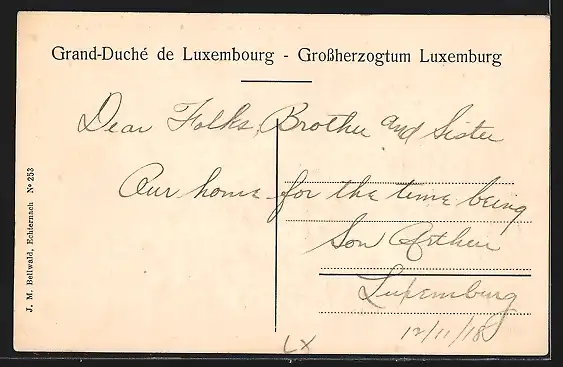 Grand-Duché de Luxembourg - Großherzogtum Luxemburg
Dear Folks, Brother and Sister
Our home for the time being
Son Arthur
Luxemburg
12/11/18
LX
J. M. Bellwald, Echternach Nº 253